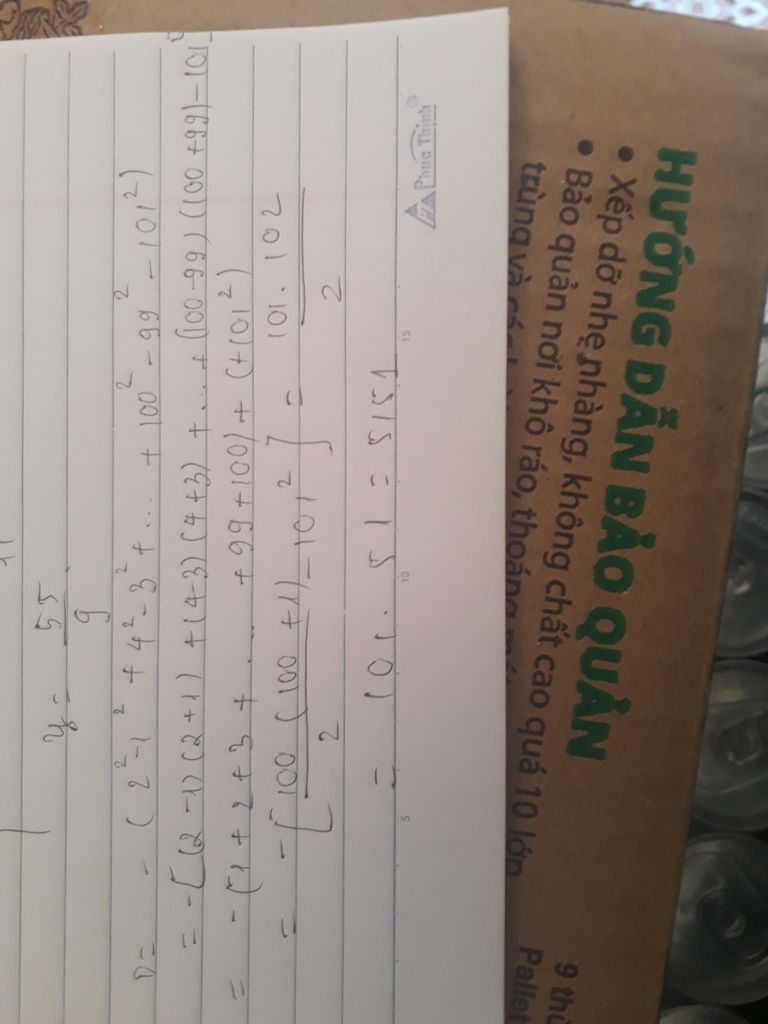 y = 55/9
D = - (2² - 1² + 4² - 3² + ... + 100² - 99² - 101²)
= - [(2 - 1)(2 + 1) + (4 - 3)(4 + 3) + ... + (100 - 99)(100 + 99) - 101²
= - (1 + 2 + 3 + ... + 99 + 100) + (+101²)
= - [100(100 + 1)/2 - 101²] = 101 . 102/2
= 101 . 51 = 5151
5 10 15
Phuc Thinh®
HƯỚNG DẪN BẢO QUẢN
• Xếp dỡ nhẹ nhàng, không chất cao quá 10 lớp
• Bảo quản nơi khô ráo, thoáng
trùng và
9 thù
Pallet